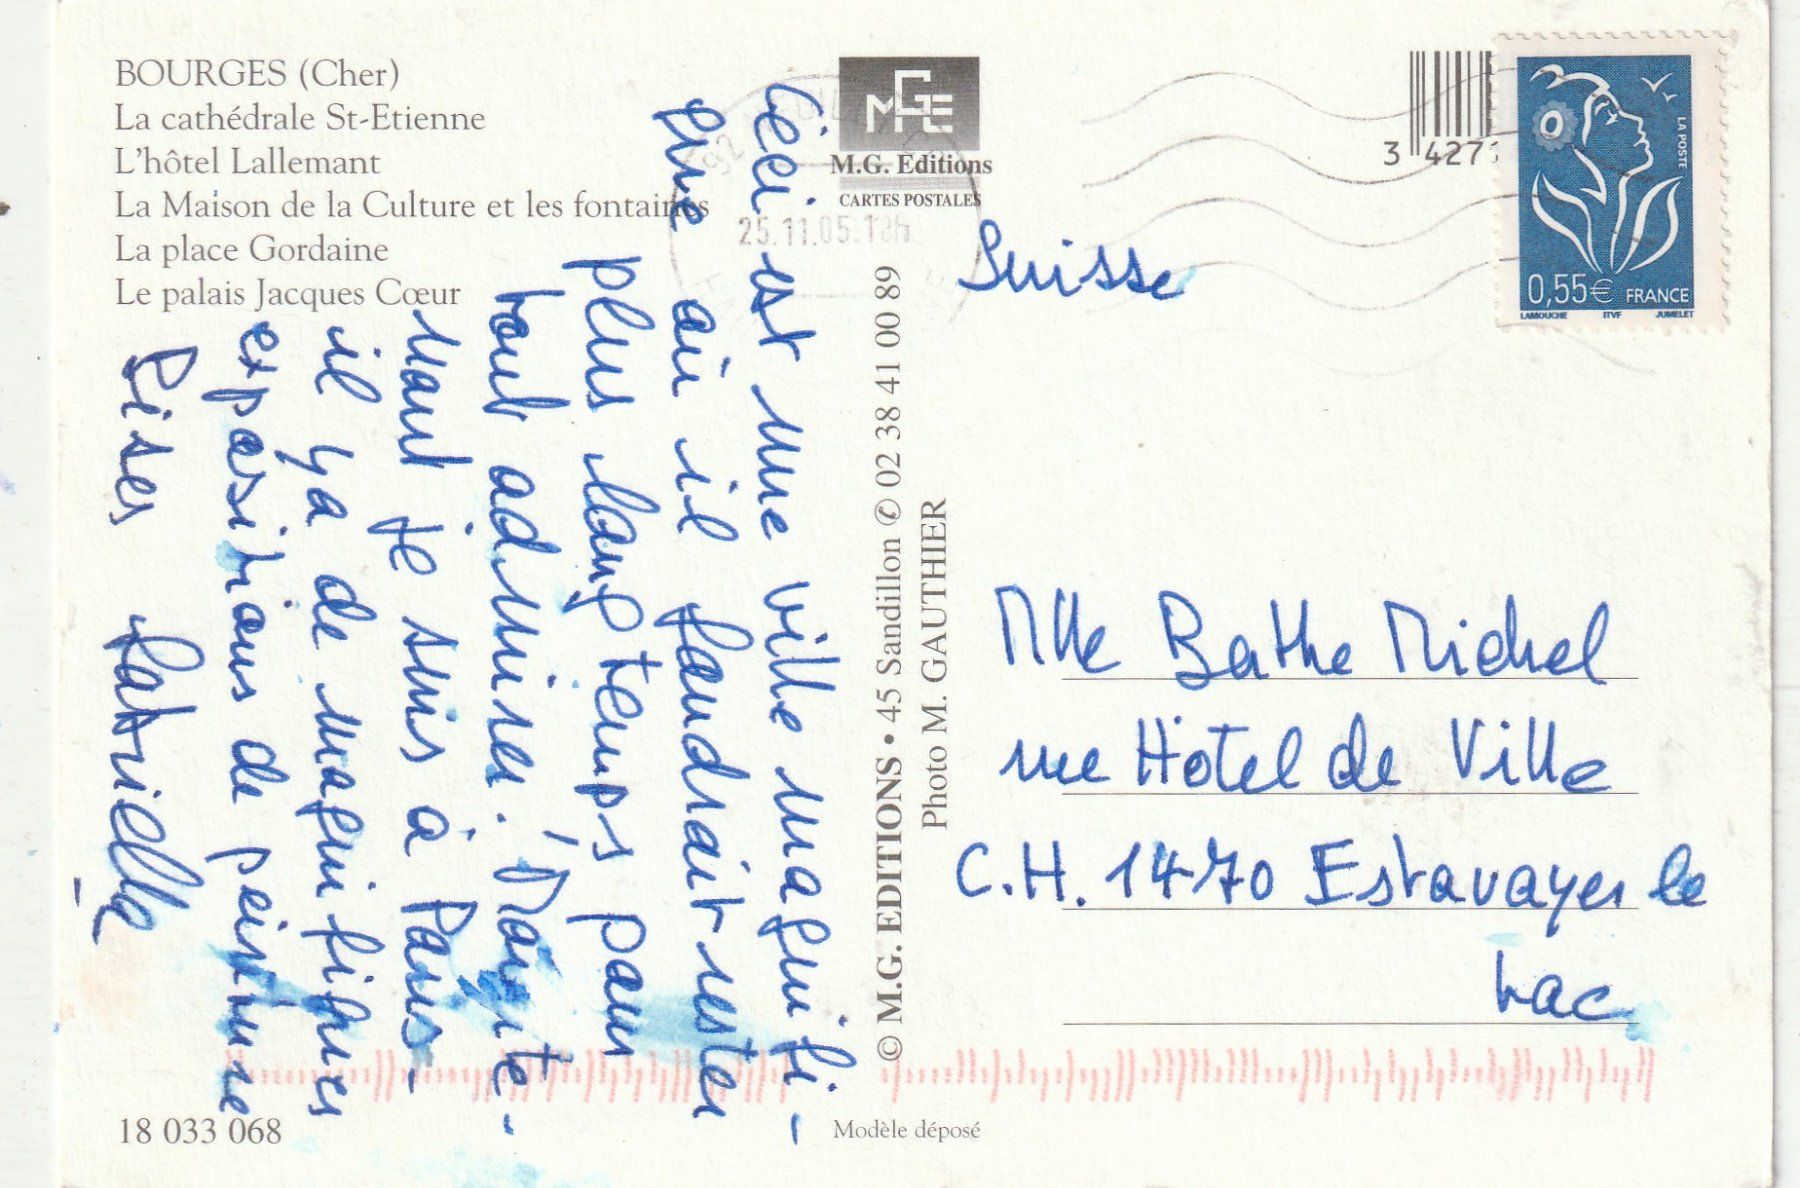 BOURGES (Cher)
La cathédrale St-Etienne
L'hôtel Lallemant
La Maison de la Culture et les fontaines
La place Gordaine
Le palais Jacques Cœur
Ceci est une ville magnifi-
que où il faudrait rester
plus longtemps pour
tout admirer. Mainte-
nant je suis à Paris -
il y a de magnifiques
expositions de peinture
Bises
18 033 068
MGE
M.G. Editions
CARTES POSTALES
25.11.05.18h
© M.G. EDITIONS • 45 Sandillon ✆ 02 38 41 00 89
Photo M. GAUTHIER
Modèle déposé
3 427
LA POSTE
0,55€ FRANCE
LAMOUCHE ITVF JUMELET
Suisse
Mlle Bathe Michel
rue Hôtel de Ville
C.H. 1470 Estavayer le
Lac